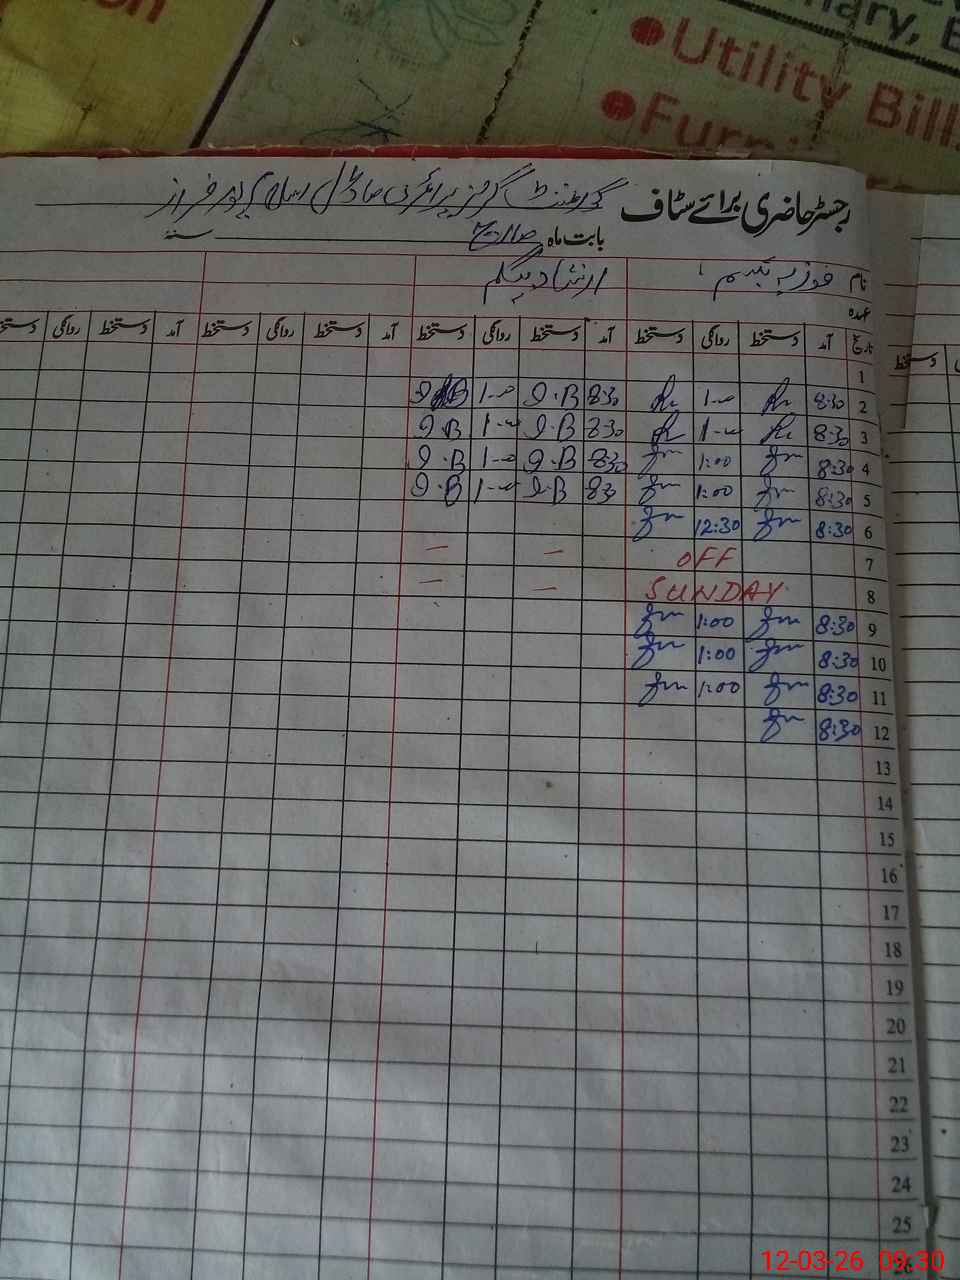 nary, E
Utility Bill
Furni
on
رجسٹر حاضری برائے سٹاف گورنمنٹ گرلز پرائمری ماڈل اسلام پور فراز
بابت ماہ مارچ سنہ
نام فوزیہ بیگم ارشاد بیگم
عہدہ
تاریخ آمد دستخط روانگی دستخط آمد دستخط روانگی دستخط آمد دستخط روانگی دستخط آمد دستخط روانگی دستخط
1
2 8:30 1-00 8:30 I.B 1-00 I.B
3 8:30 1-00 8:30 I.B 1-00 I.B
4 8:30 1:00 8:30 I.B 1-00 I.B
5 8:30 1:00 8:30 I.B 1-00 I.B
6 8:30 12:30
7 OFF – –
8 SUNDAY – –
9 8:30 1:00
10 8:30 1:00
11 8:30 1:00
12 8:30
13
14
15
16
17
18
19
20
21
22
23
24
25
26
دستخط
12-03-26 09:30